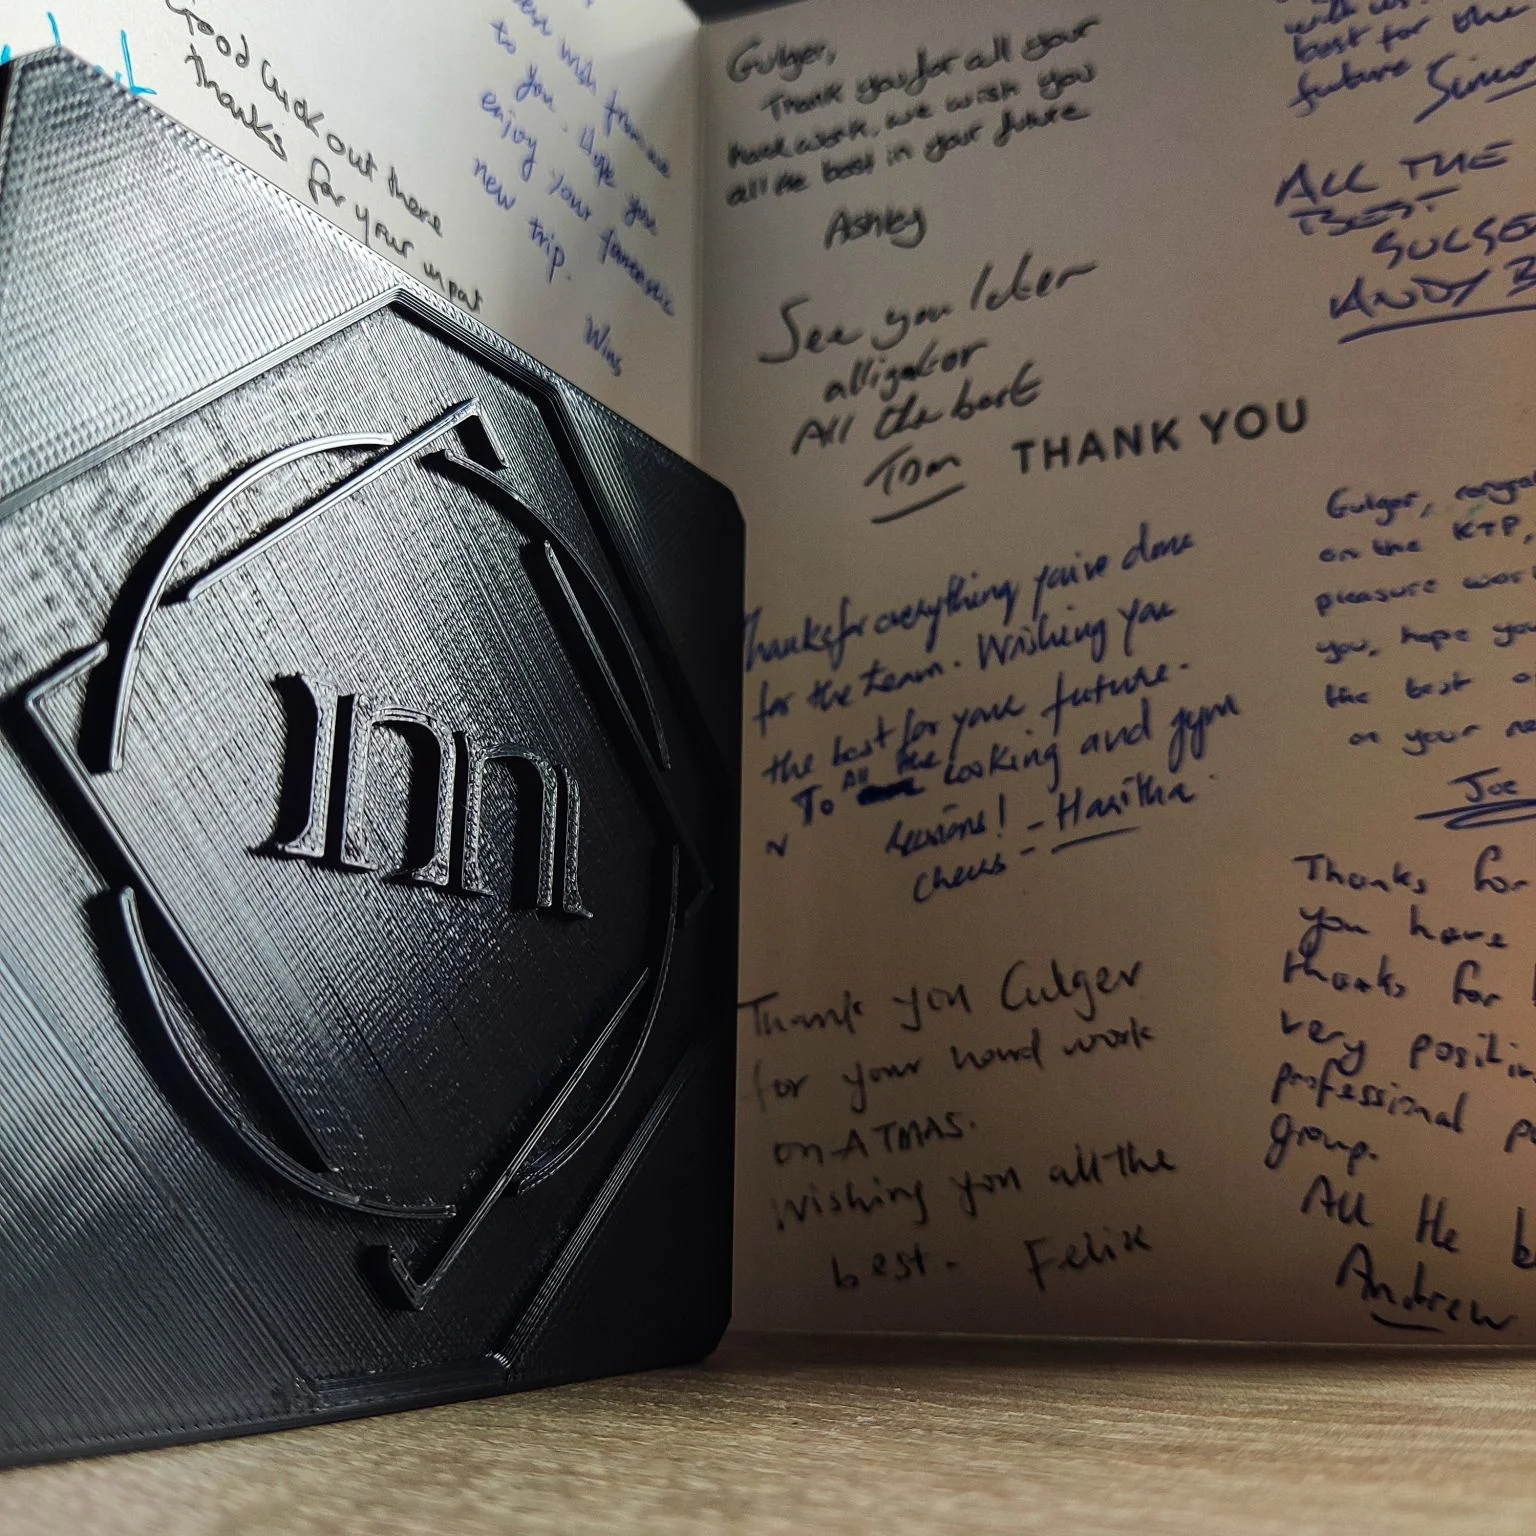 Good Luck out there
thanks for your input
wish from me
to you. Hope you
enjoy your fantastic
new trip.
Wins
Gulger,
Thank you for all your
hard work, we wish you
all the best in your future
Ashley
See you later
alligator
All the best
Tom
THANK YOU
Thanks for everything you've done
for the team. Wishing you
the best for your future.
To All the cooking and gym
sessions! - Haritha.
cheers -
Thank you Gulger
for your hard work
on ATMAS.
Wishing you all the
best. Felix
with us.
best for the
future
ALL THE
BEST
ANDY B
Gulger,
on the KTP,
pleasure
you, hope you
the best
on your
Joe
Thanks for
you have
thanks for
very
professional
group.
All the b
Andrew
inn